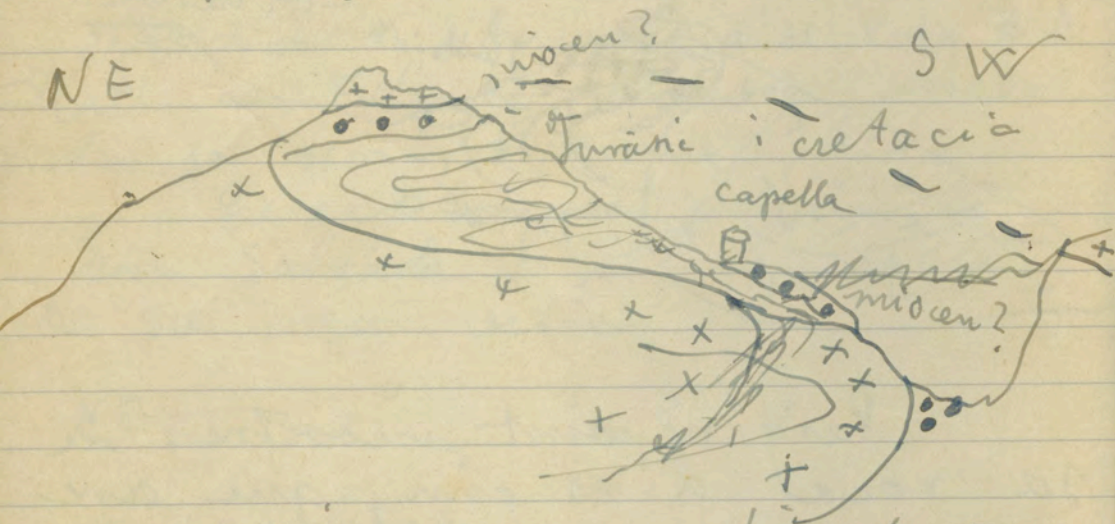 NE
SW
miocen?
Juràsic i cretacia
capella
miocen?